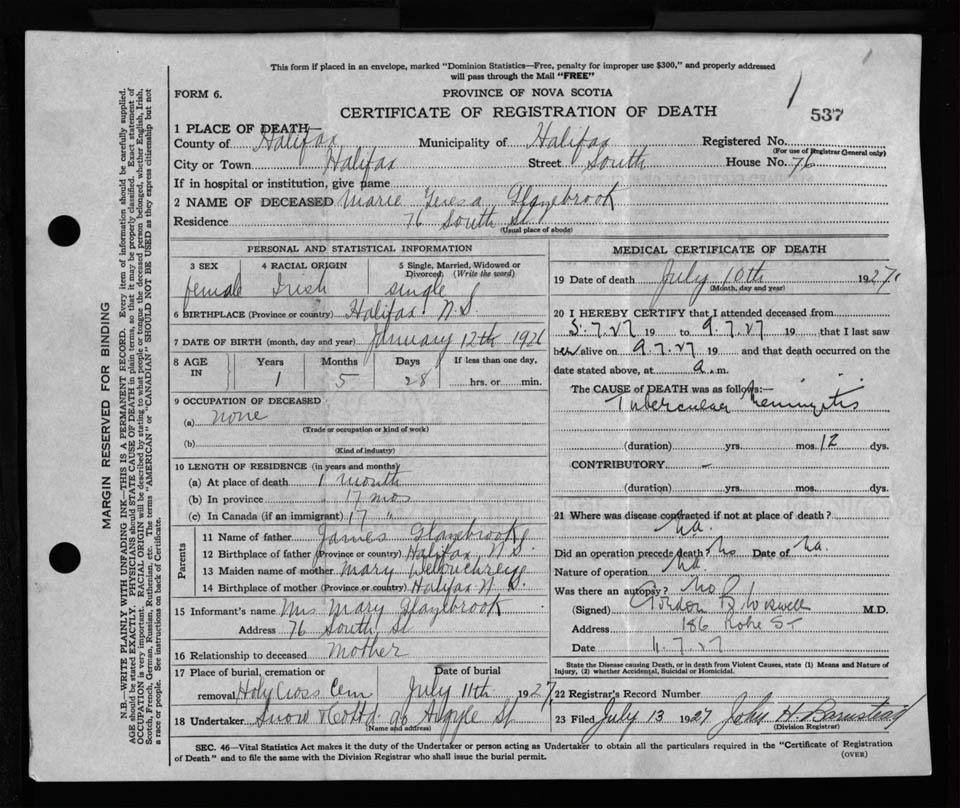 This form if placed in an envelope, marked "Dominion Statistics—Free, penalty for improper use $300," and properly addressed
will pass through the Mail "FREE"
FORM 6.
PROVINCE OF NOVA SCOTIA
1
537
CERTIFICATE OF REGISTRATION OF DEATH
1 PLACE OF DEATH—
County of Halifax Municipality of Halifax Registered No.
(For use of Registrar General only)
City or Town Halifax Street South House No. 76
If in hospital or institution, give name
2 NAME OF DECEASED Marie Teresa Glazebrook
Residence 76 South St
(Usual place of abode)
PERSONAL AND STATISTICAL INFORMATION
3 SEX 4 RACIAL ORIGIN 5 Single, Married, Widowed or
Divorced (Write the word)
female Irish single
6 BIRTHPLACE (Province or country) Halifax N.S.
7 DATE OF BIRTH (month, day and year) January 12th 1926
8 AGE IN Years Months Days If less than one day,
1 5 28 hrs. or min.
9 OCCUPATION OF DECEASED
(a) none
(Trade or occupation or kind of work)
(b)
(Kind of industry)
10 LENGTH OF RESIDENCE (in years and months)
(a) At place of death 1 month
(b) In province 17 mos
(c) In Canada (if an immigrant) 17 "
Parents
11 Name of father James Glazebrook
12 Birthplace of father (Province or country) Halifax, N.S.
13 Maiden name of mother Mary
14 Birthplace of mother (Province or country) Halifax N.S.
15 Informant's name Mrs Mary Glazebrook
Address 76 South St
16 Relationship to deceased Mother
17 Place of burial, cremation or Date of burial
removal Holy Cross Cem July 11th 1927
18 Undertaker Snow & Co Ltd 90 Argyle St
(Name and address)
MEDICAL CERTIFICATE OF DEATH
19 Date of death July 10th 1927
(Month, day and year)
20 I HEREBY CERTIFY that I attended deceased from
5.7.27 19 to 9.7.27 19 that I last saw
her alive on 9.7.27 19 and that death occurred on the
date stated above, at a.m.
The CAUSE of DEATH was as follows:—
Tubercular Meningitis
(duration) yrs. mos. 12 dys.
CONTRIBUTORY –
(duration) yrs. mos. dys.
21 Where was disease contracted if not at place of death?
na.
Did an operation precede death? No Date of na
Nature of operation na.
Was there an autopsy? No
(Signed) Gordon B Wiswell M.D.
Address 186 St
Date 11.7.27
State the Disease causing Death, or in death from Violent Causes, state (1) Means and Nature of
Injury, (2) whether Accidental, Suicidal or Homicidal.
22 Registrar's Record Number
23 Filed July 13 1927 John H. Barnstead
(Division Registrar)
SEC. 46—Vital Statistics Act makes it the duty of the Undertaker or person acting as Undertaker to obtain all the particulars required in the "Certificate of Registration
of Death" and to file the same with the Division Registrar who shall issue the burial permit.
(OVER)
MARGIN RESERVED FOR BINDING
N.B.—WRITE PLAINLY WITH UNFADING INK—THIS IS A PERMANENT RECORD. Every item of information should be carefully supplied.
AGE should be stated EXACTLY. PHYSICIANS should STATE CAUSE OF DEATH in plain terms, so that it may be properly classified. Exact statement of
OCCUPATION is very important. RACIAL ORIGIN will be described by stating to what people or tongue the deceased person belonged, whether English, Irish,
Scotch, French, German, Russian, Ruthenian, etc. The terms "AMERICAN" or "CANADIAN" SHOULD NOT BE USED as they express citizenship but not
a race or people. See instructions on back of Certificate.